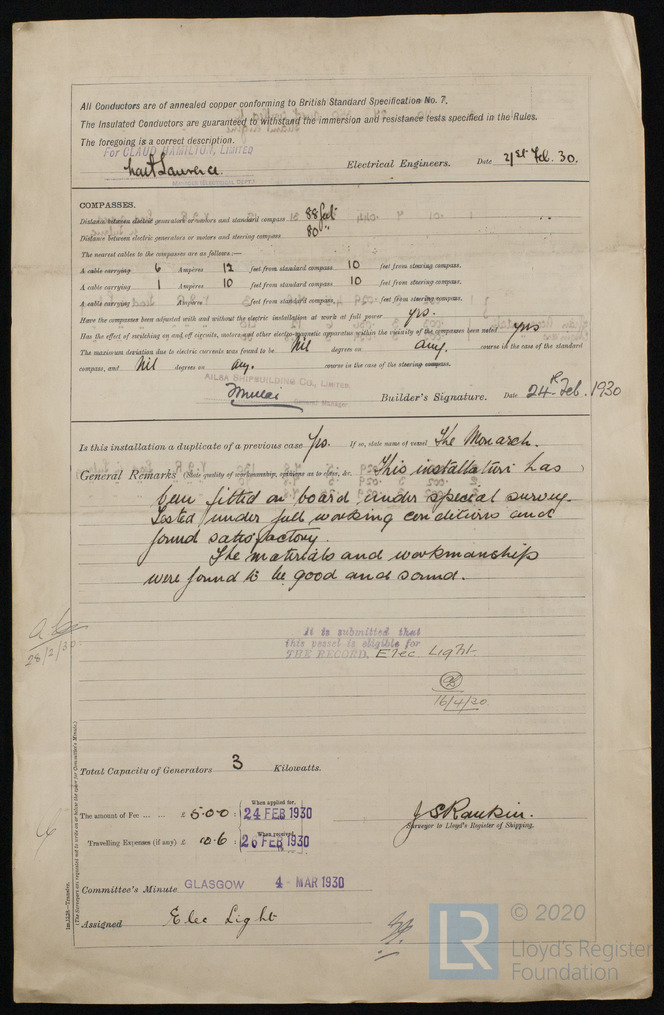 All Conductors are of annealed copper conforming to British Standard Specification No. 7.
The Insulated Conductors are guaranteed to withstand the immersion and resistance tests specified in the Rules.
The foregoing is a correct description.
For CLAUD HAMILTON, LIMITED
Lawrence Electrical Engineers. Date 21st Feb. 30.
COMPASSES.
Distance between electric generators or motors and standard compass 88 feet
Distance between electric generators or motors and steering compass 80 "
The nearest cables to the compasses are as follows:—
A cable carrying 6 Ampères 12 feet from standard compass 10 feet from steering compass.
A cable carrying 1 Ampères 10 feet from standard compass 10 feet from steering compass.
A cable carrying Ampères feet from standard compass, feet from steering compass.
Have the compasses been adjusted with and without the electric installation at work at full power yes.
Has the effect of switching on and off circuits, motors and other electro-magnetic apparatus within the vicinity of the compasses been noted yes
The maximum deviation due to electric currents was found to be Nil degrees on any. course in the case of the standard
compass, and Nil degrees on any. course in the case of the steering compass.
AILSA SHIPBUILDING CO., LIMITED.
General Manager. Builder's Signature. Date 24th Feb. 1930
Is this installation a duplicate of a previous case Yes. If so, state name of vessel The Monarch.
General Remarks (State quality of workmanship, opinions as to class, &c. This installation has
been fitted on board under special survey.
Tested under full working conditions and
found satisfactory.
The materials and workmanship
were found to be good and sound.
28/2/30
It is submitted that
this vessel is eligible for
THE RECORD. Elec. Light
16/4/30.
Total Capacity of Generators 3 Kilowatts.
The amount of Fee ... ... £ 5:0:0 : When applied for, 24 FEB 1930
J S Rankin.
Surveyor to Lloyd's Register of Shipping.
Travelling Expenses (if any) £ 10.6 : When received, 26 FEB 1930
Committee's Minute GLASGOW 4 - MAR 1930
Assigned Elec Light
LR © 2020
Lloyd's Register
Foundation